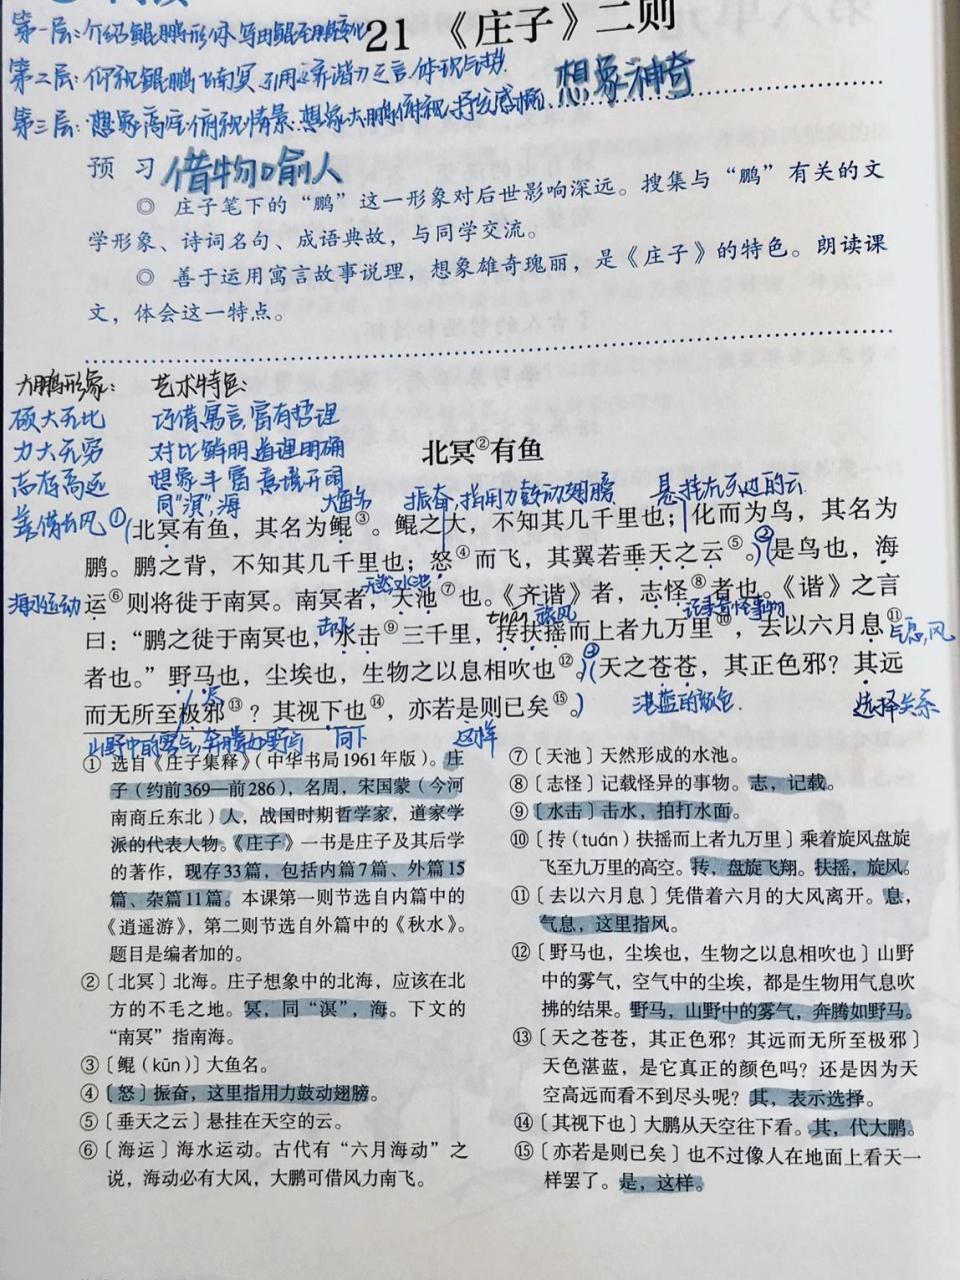 第一层：介绍鲲鹏形体，写由鲲至鹏变化
21 《庄子》二则
第二层：仰视鲲鹏飞南冥，引用齐谐之言，体现气势
想象神奇
第三层：想象高空俯视情景，想象大鹏俯视，抒发感慨
预 习 借物喻人
◎ 庄子笔下的“鹏”这一形象对后世影响深远。搜集与“鹏”有关的文
学形象、诗词名句、成语典故，与同学交流。
◎ 善于运用寓言故事说理，想象雄奇瑰丽，是《庄子》的特色。朗读课
文，体会这一特点。
大鹏形象： 艺术特色：
硕大无比 巧借寓言，富有哲理
力大无穷 对比鲜明，道理明确
北冥②有鱼
志存高远 想象丰富，意境开阔
同“溟”，海 大鱼名 振奋，指用力鼓动翅膀 悬挂在天边的云
善借大风
北冥有鱼，其名为鲲③。鲲之大，不知其几千里也；化而为鸟，其名为
鹏。鹏之背，不知其几千里也；怒④而飞，其翼若垂天之云⑤。是鸟也，海
天然水池
海水运动
运⑥则将徙于南冥。南冥者，天池⑦也。《齐谐》者，志怪⑧者也。《谐》之言
击水 tuán 旋风 记载怪异事物
曰：“鹏之徙于南冥也，水击⑨三千里，抟扶摇而上者九万里⑩，去以六月息⑪
气息，风
者也。”野马也，尘埃也，生物之以息相吹也⑫。天之苍苍，其正色邪？其远
而无所至极邪⑬？其视下也⑭，亦若是则已矣⑮。
湛蓝的颜色. 选择关系
山野中的雾气，奔腾如野马 向下 这样
① 选自《庄子集释》（中华书局1961年版）。庄
子（约前369—前286），名周，宋国蒙（今河
南商丘东北）人，战国时期哲学家，道家学
派的代表人物。《庄子》一书是庄子及其后学
的著作，现存33篇，包括内篇7篇、外篇15
篇、杂篇11篇。本课第一则节选自内篇中的
《逍遥游》，第二则节选自外篇中的《秋水》。
题目是编者加的。
②〔北冥〕北海。庄子想象中的北海，应该在北
方的不毛之地。冥，同“溟”，海。下文的
“南冥”指南海。
③〔鲲（kūn）〕大鱼名。
④〔怒〕振奋，这里指用力鼓动翅膀。
⑤〔垂天之云〕悬挂在天空的云。
⑥〔海运〕海水运动。古代有“六月海动”之
说，海动必有大风，大鹏可借风力南飞。
⑦〔天池〕天然形成的水池。
⑧〔志怪〕记载怪异的事物。志，记载。
⑨〔水击〕击水，拍打水面。
⑩〔抟（tuán）扶摇而上者九万里〕乘着旋风盘旋
飞至九万里的高空。抟，盘旋飞翔。扶摇，旋风。
⑪〔去以六月息〕凭借着六月的大风离开。息，
气息，这里指风。
⑫〔野马也，尘埃也，生物之以息相吹也〕山野
中的雾气，空气中的尘埃，都是生物用气息吹
拂的结果。野马，山野中的雾气，奔腾如野马。
⑬〔天之苍苍，其正色邪？其远而无所至极邪〕
天色湛蓝，是它真正的颜色吗？还是因为天
空高远而看不到尽头呢？其，表示选择。
⑭〔其视下也〕大鹏从天空往下看。其，代大鹏。
⑮〔亦若是则已矣〕也不过像人在地面上看天一
样罢了。是，这样。